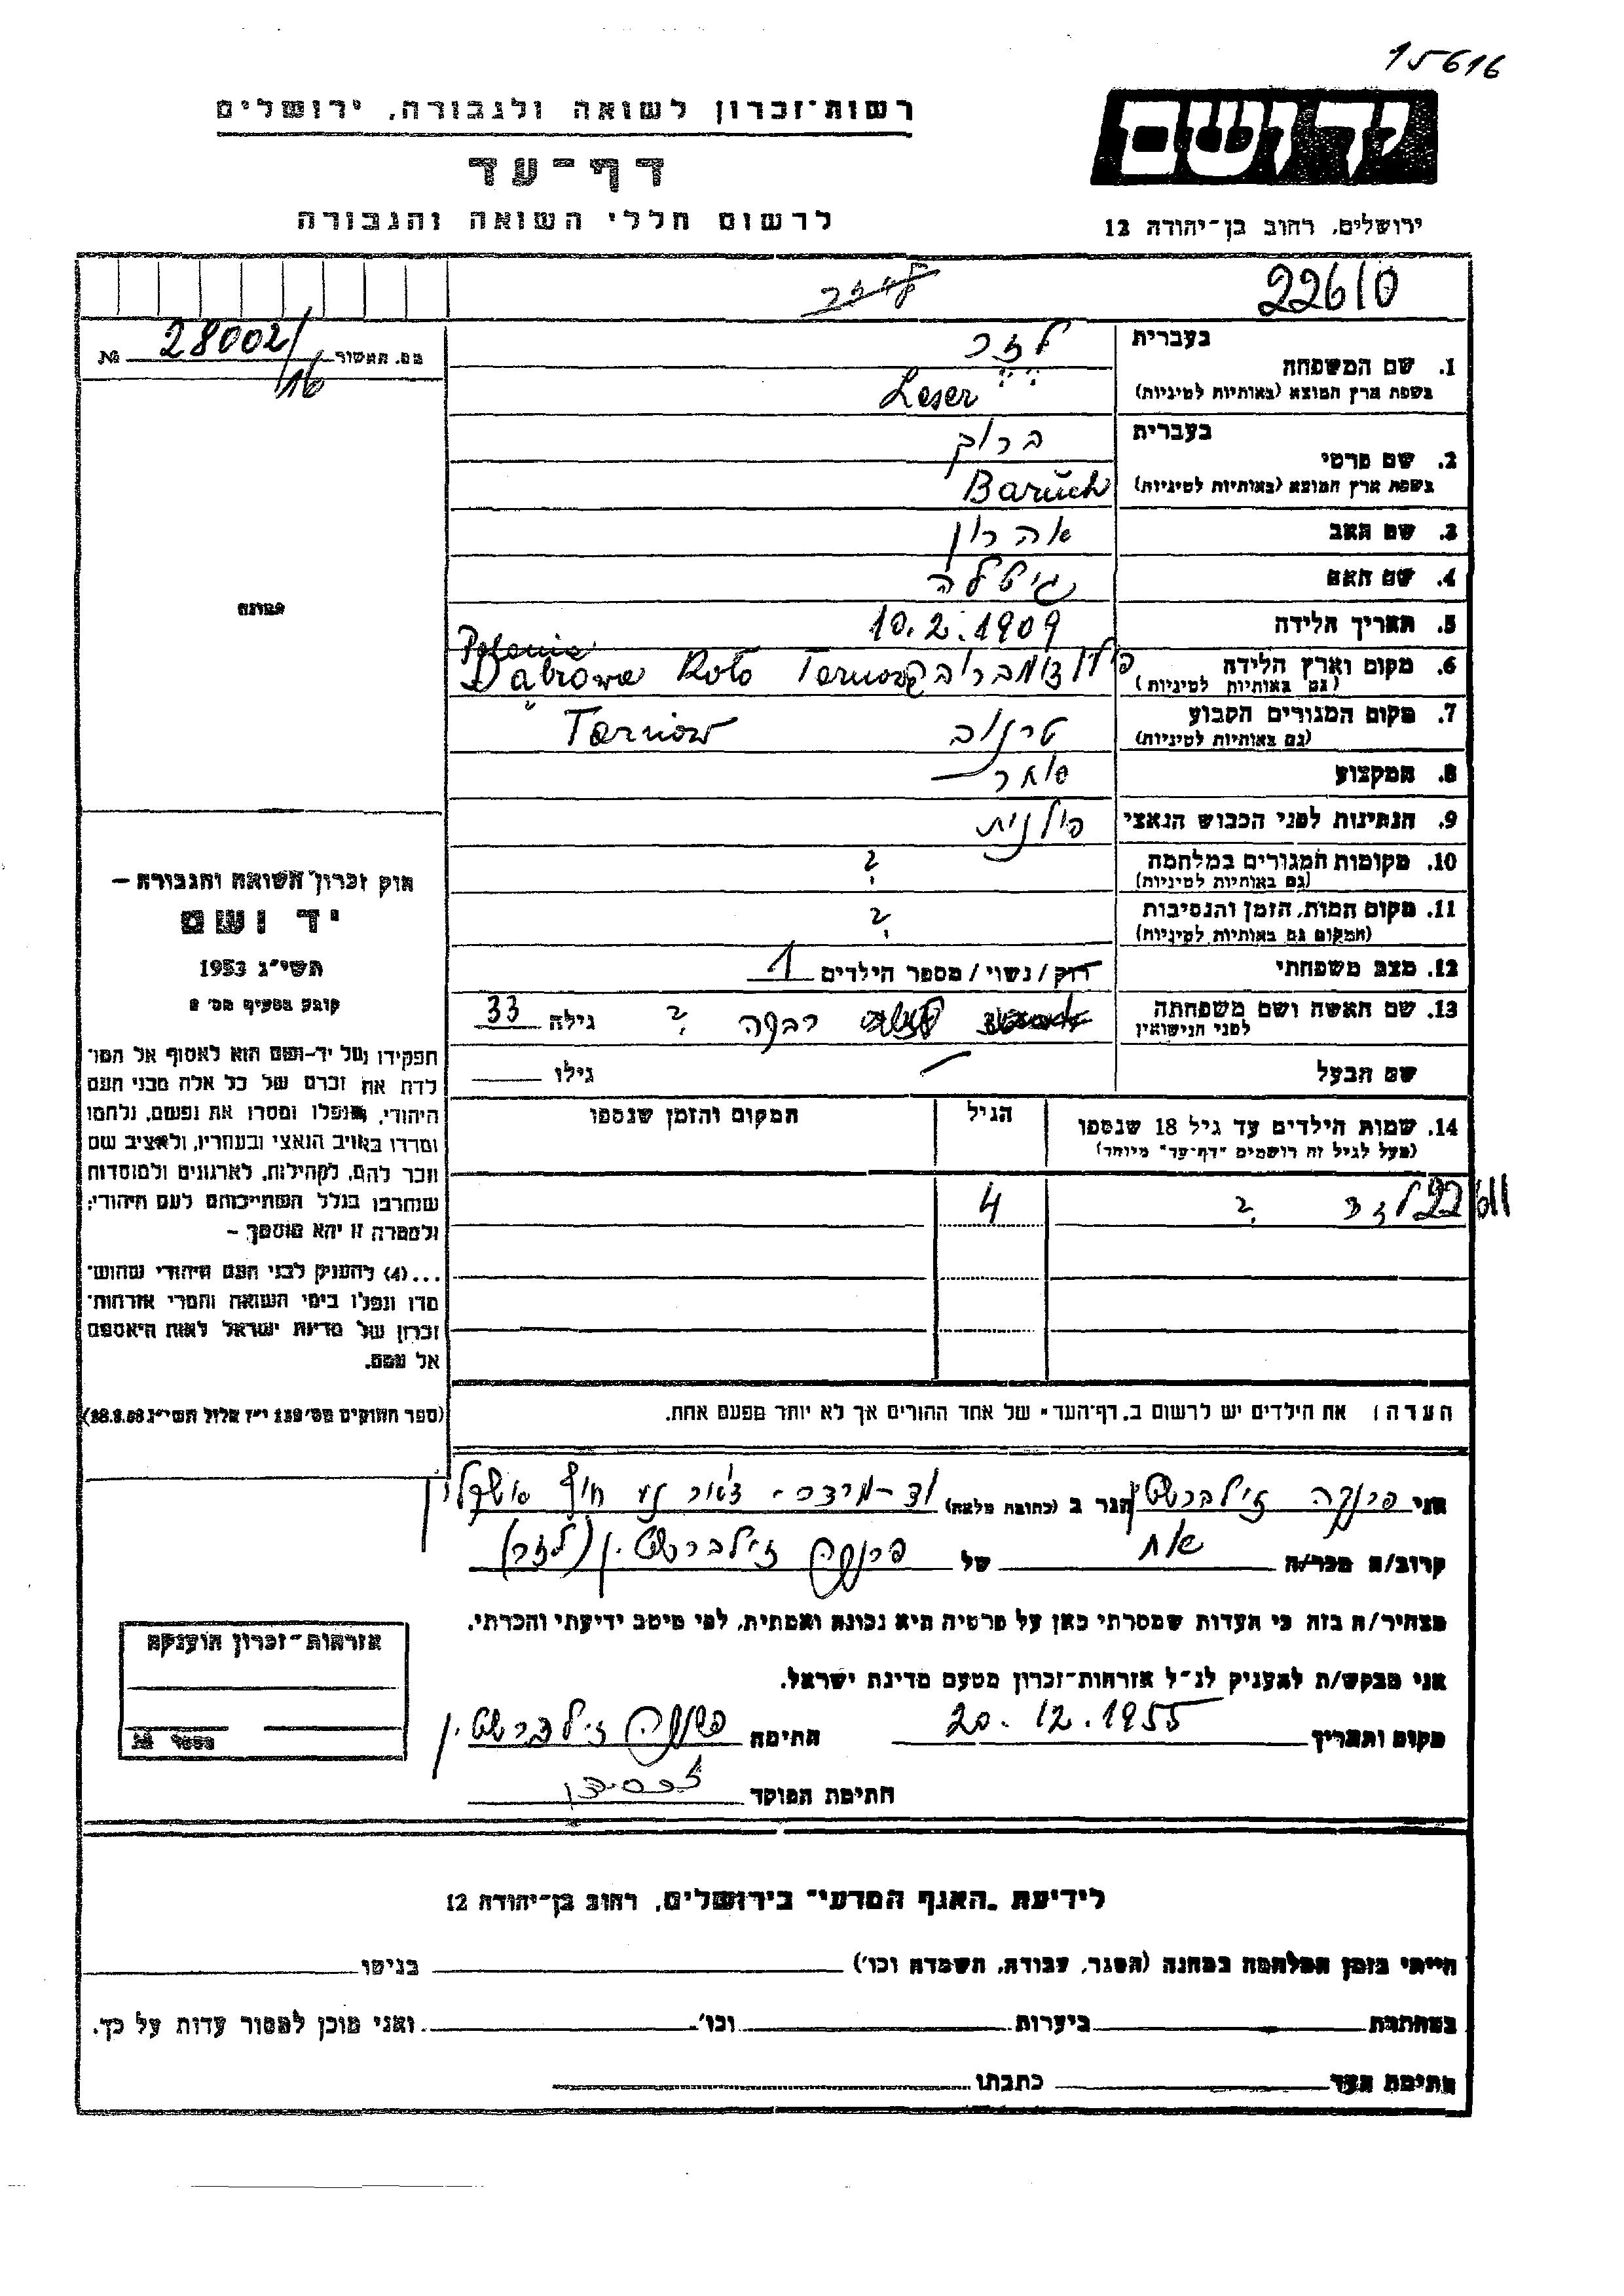 15616
רשות־זכרון לשואה ולגבורה, ירושלים
יד ושם
דף־עד
לרשום חללי השואה והגבורה
ירושלים, רחוב בן־יהודה 12
22610
מס. האשור 28002/16 №
בעברית לזר
1. שם המשפחה
בשפת ארץ המוצא (באותיות לטיניות) Leser
בעברית ברוך
2. שם פרטי
בשפת ארץ המוצא (באותיות לטיניות) Baruch
3. שם האב אהרון
4. שם האם גיטלה
5. תאריך הלידה 10.2.1909
6. מקום וארץ הלידה
(גם באותיות לטיניות) Polania Dąbrowa Koło Tarnowa
7. מקום המגורים הקבוע טרנוב Tarnow
(גם באותיות לטיניות)
8. המקצוע סוחר
9. הנתינות לפני הכבוש הנאצי פולנית
10. מקומות המגורים במלחמה ?
(גם באותיות לטיניות)
11. מקום המות, הזמן והנסיבות ?
(המקום גם באותיות לטיניות)
12. מצב משפחתי רוק / נשוי / מספר הילדים 1
13. שם האשה ושם משפחתה רבקה ? גילה 33
לפני הנישואין
שם הבעל גילו
14. שמות הילדים עד גיל 18 שנספו הגיל המקום והזמן שנספו
(מעל לגיל זה רושמים "דף־עד" מיוחד)
22611 לזר ? 4
הערה: את הילדים יש לרשום ב„דף־העד" של אחד ההורים אך לא יותר מפעם אחת.
תמונה
חוק זכרון השואה והגבורה –
יד ושם
תשי"ג 1953
קובע בסעיף מס' 2
תפקידו של יד-ושם הוא לאסוף אל המו־
לדת את זכרם של כל אלה מבני העם
היהודי, שנפלו ומסרו את נפשם, נלחמו
ומרדו באויב הנאצי ובעוזריו, ולהציב שם
וזכר להם, לקהילות, לארגונים ולמוסדות
שנחרבו בגלל השתייכותם לעם היהודי;
ולמטרה זו יהא מוסמך –
...(4) להעניק לבני העם היהודי שהוש־
מדו ונפלו בימי השואה והמרי אזרחות־
זכרון של מדינת ישראל לאות היאספם
אל עמם.
(ספר החוקים מס' 132 י"ז אלול תשי"ג 28.8.53)
אני פרנקה זילברשטין הגר ב (כתובת מלאה)
קרוב/ה מכר/ה אח של פרנקה זילברשטין (לזר)
מצהיר/ה בזה כי העדות שמסרתי כאן על פרטיה היא נכונה ואמתית, לפי מיטב ידיעתי והכרתי.
אני מבקש/ת להעניק לנ"ל אזרחות־זכרון מטעם מדינת ישראל.
מקום ותאריך 20.12.1955 חתימה פרנקה זילברשטין
חתימת הפוקד
אזרחות־זכרון הוענקה
מספר №
לידיעת „האגף המדעי" בירושלים, רחוב בן־יהודה 12
הייתי בזמן המלחמה במחנה (הסגר, עבודה, השמדה וכו') בגיטו
במחתרת ביערות וכו' ואני מוכן למסור עדות על כך.
חתימת העד כתבתו